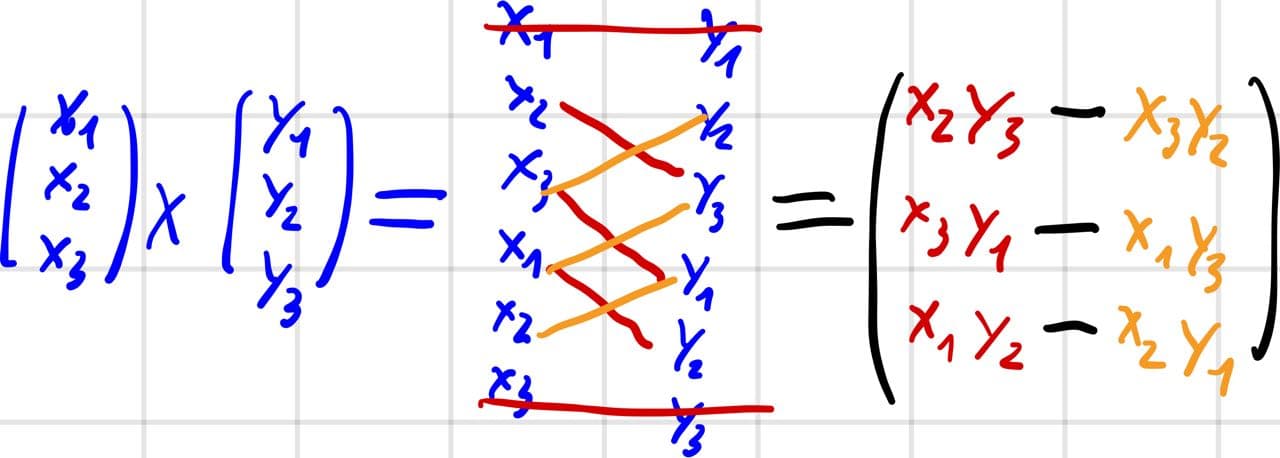 X₁ Y₁
X₂ Y₂
X₃ Y₃
X₁ Y₁
X₂ Y₂
X₃ Y₃
(X₁ X₂ X₃) × (Y₁ Y₂ Y₃) = = (X₂Y₃ − X₃Y₂
X₃Y₁ − X₁Y₃
X₁Y₂ − X₂Y₁)